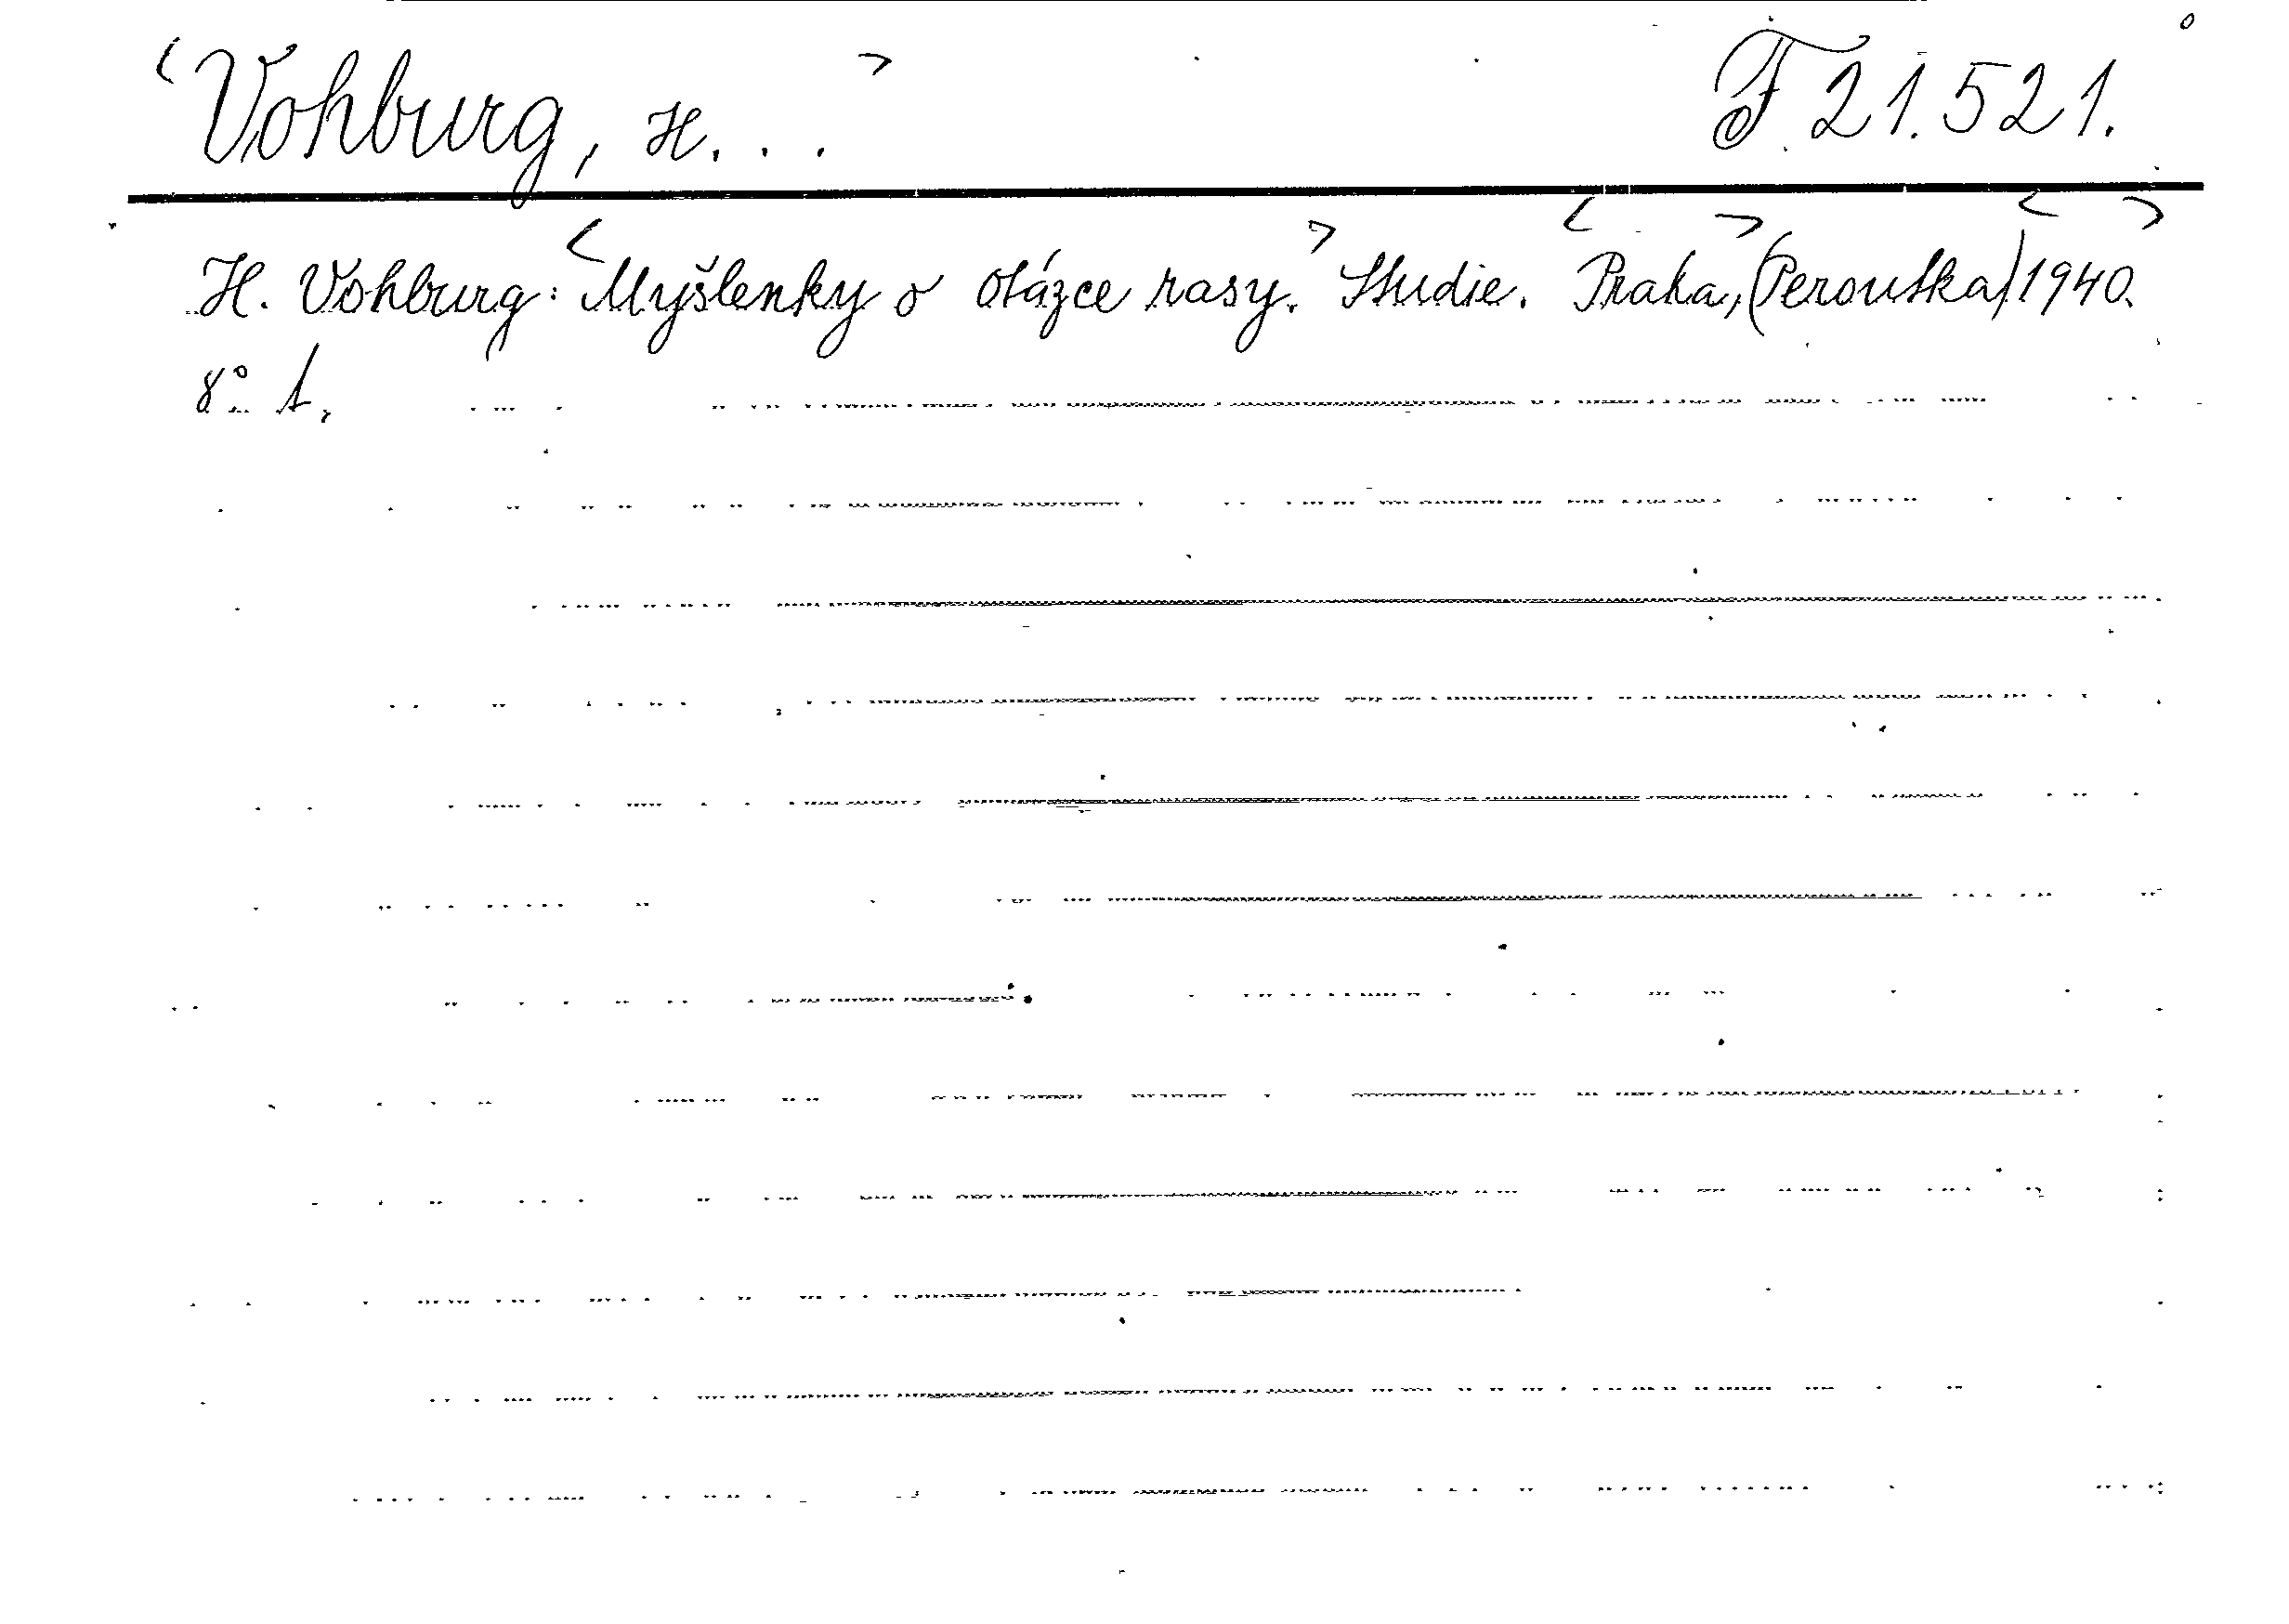 <Vohburg, H...> F 21.521.
H. Vohburg: <Myšlenky o otázce rasy.> Studie. <Praka,> (Peroutka) <1940.>
8° 1.